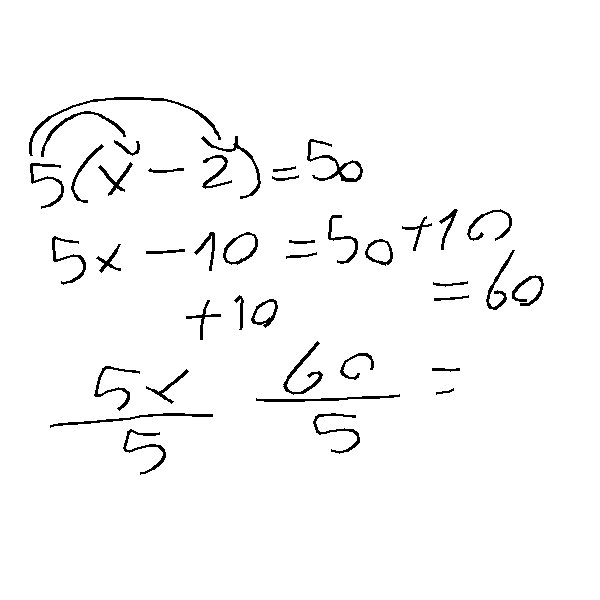 5(x - 2) = 50
5x - 10 = 50 + 10
= 60
+ 10
5x/5 60/5 =